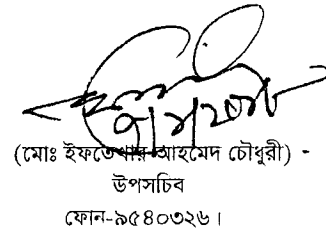 (মোঃ ইফতেখার আহমেদ চৌধুরী)
উপসচিব
ফোন-৯৫৪০৩২৬।